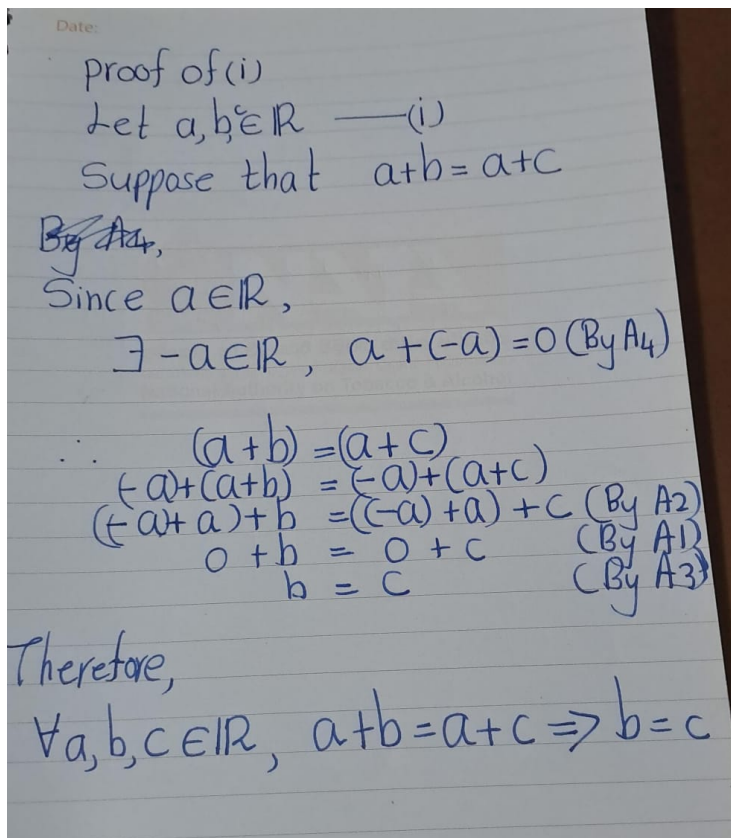 Date:
Proof of (i)
Let a, b, c ∈ ℝ —(i)
Suppose that a+b = a+c
By A4,
Since a ∈ ℝ,
∃ -a ∈ ℝ, a + (-a) = 0 (By A4)
∴ (a+b) = (a+c)
(-a)+(a+b) = (-a)+(a+c)
((-a)+a)+b = ((-a)+a)+c (By A2)
0 + b = 0 + c (By A1)
b = c (By A3)
Therefore,
∀a,b,c ∈ ℝ, a+b = a+c ⇒ b = c